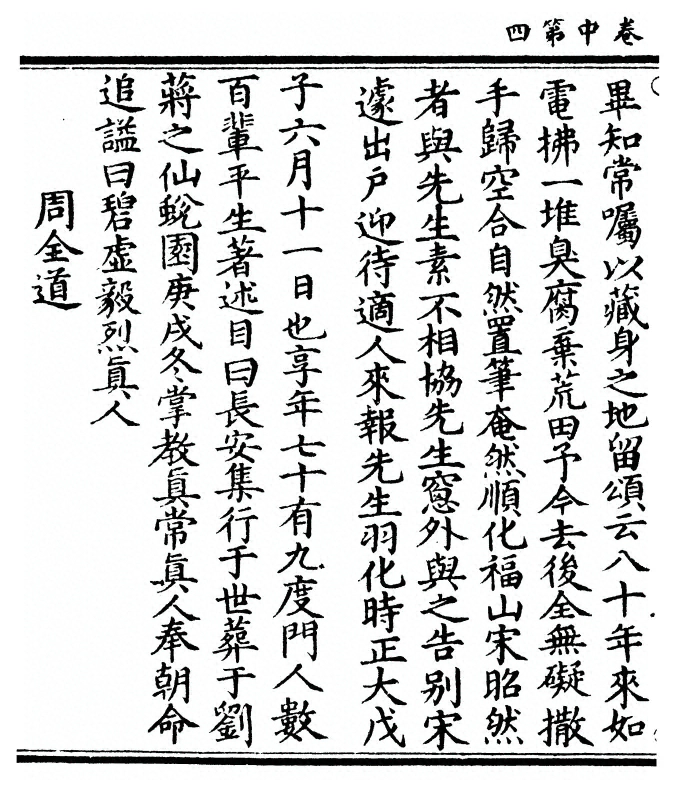 卷中第四
畢知常囑以藏身之地留頌云八十年來如
電拂一堆臭腐棄荒田予今去後全無礙撒
手歸空合自然置筆奄然順化福山宋昭然
者與先生素不相協先生窻外與之告别宋
遽出戶迎待適人來報先生羽化時正大戊
子六月十一日也享年七十有九度門人數
百輩平生著述目曰長安集行于世葬于劉
蔣之仙蛻園庚戌冬掌教眞常眞人奉朝命
追謚曰碧虛毅烈眞人
周全道